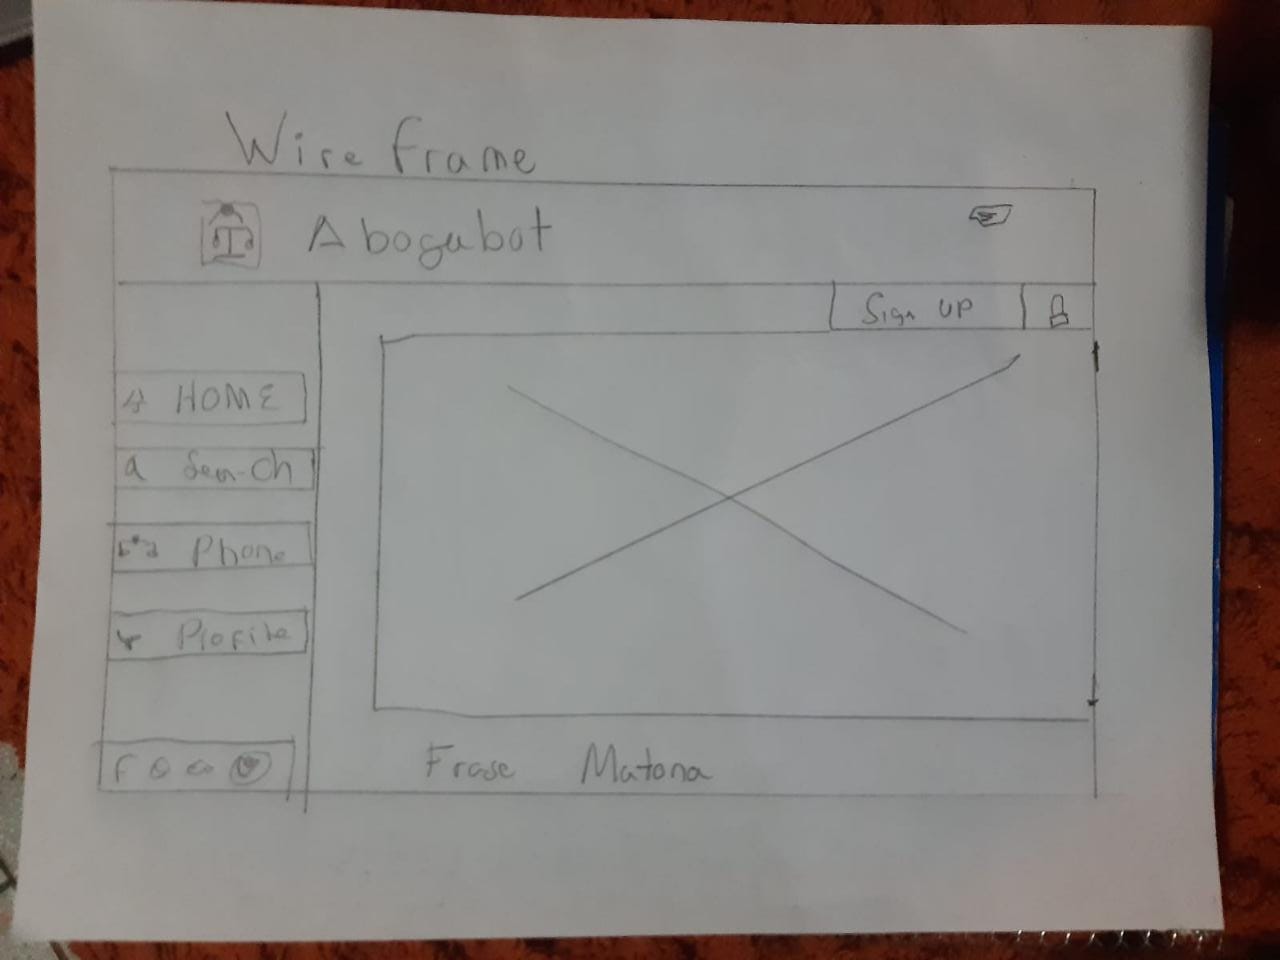 Wire frame
Abogabot
Sign UP
HOME
Search
Phone
Profile
Frase Matona